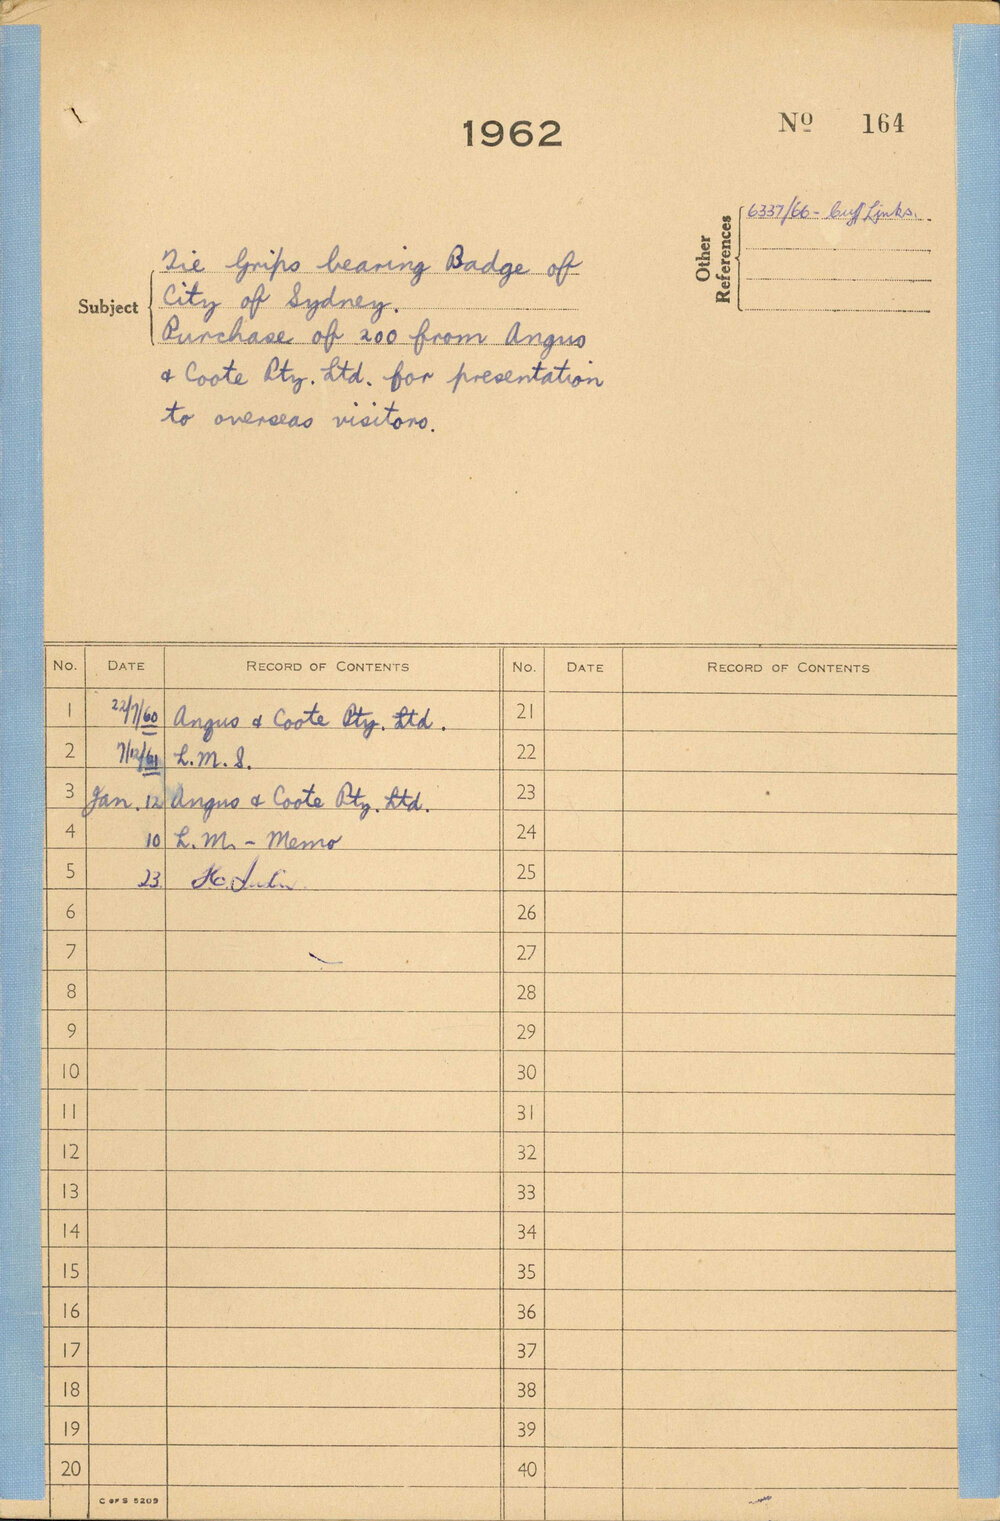 1962
Nº 164
Other References
6337/66 - Cuff Links.
Subject
Tie Grips bearing Badge of
City of Sydney.
Purchase of 200 from Angus
& Coote Pty. Ltd. for presentation
to overseas visitors.
No. DATE RECORD OF CONTENTS No. DATE RECORD OF CONTENTS
1 22/7/60 Angus & Coote Pty. Ltd. 21
2 7/12/61 L.M.S. 22
3 Jan. 12 Angus & Coote Pty. Ltd. 23
4 10 L.M. - Memo 24
5 23 25
6 26
7 27
8 28
9 29
10 30
11 31
12 32
13 33
14 34
15 35
16 36
17 37
18 38
19 39
20 40
C OF S 5209